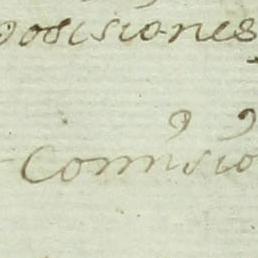 posiciones
Comisio